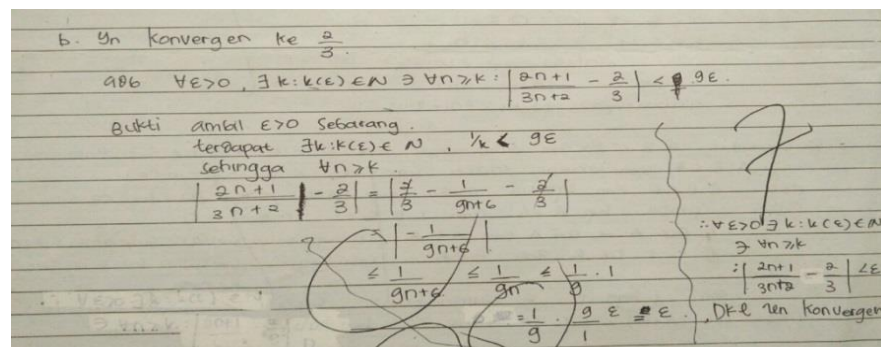 b. Yn konvergen ke 2/3.
adb ∀ε>0, ∃ k: k(ε) ∈ N ∋ ∀n≥k: |2n+1/3n+2 - 2/3| < 9ε.
Bukti ambil ε>0 sebarang.
terdapat ∃k:k(ε) ∈ N, 1/k < 9ε
sehingga ∀n≥k.
|2n+1/3n+2 - 2/3| = |2/3 - 1/9n+6 - 2/3|
= |- 1/9n+6|
≤ 1/9n+6 ≤ 1/9n ≤ 1/9 · 1
= 1/9 · 9/1 ε = ε
∴ ∀ε>0 ∃ k: k(ε) ∈ N
∋ ∀n≥k
: |2n+1/3n+2 - 2/3| <ε
, Dkl konvergen